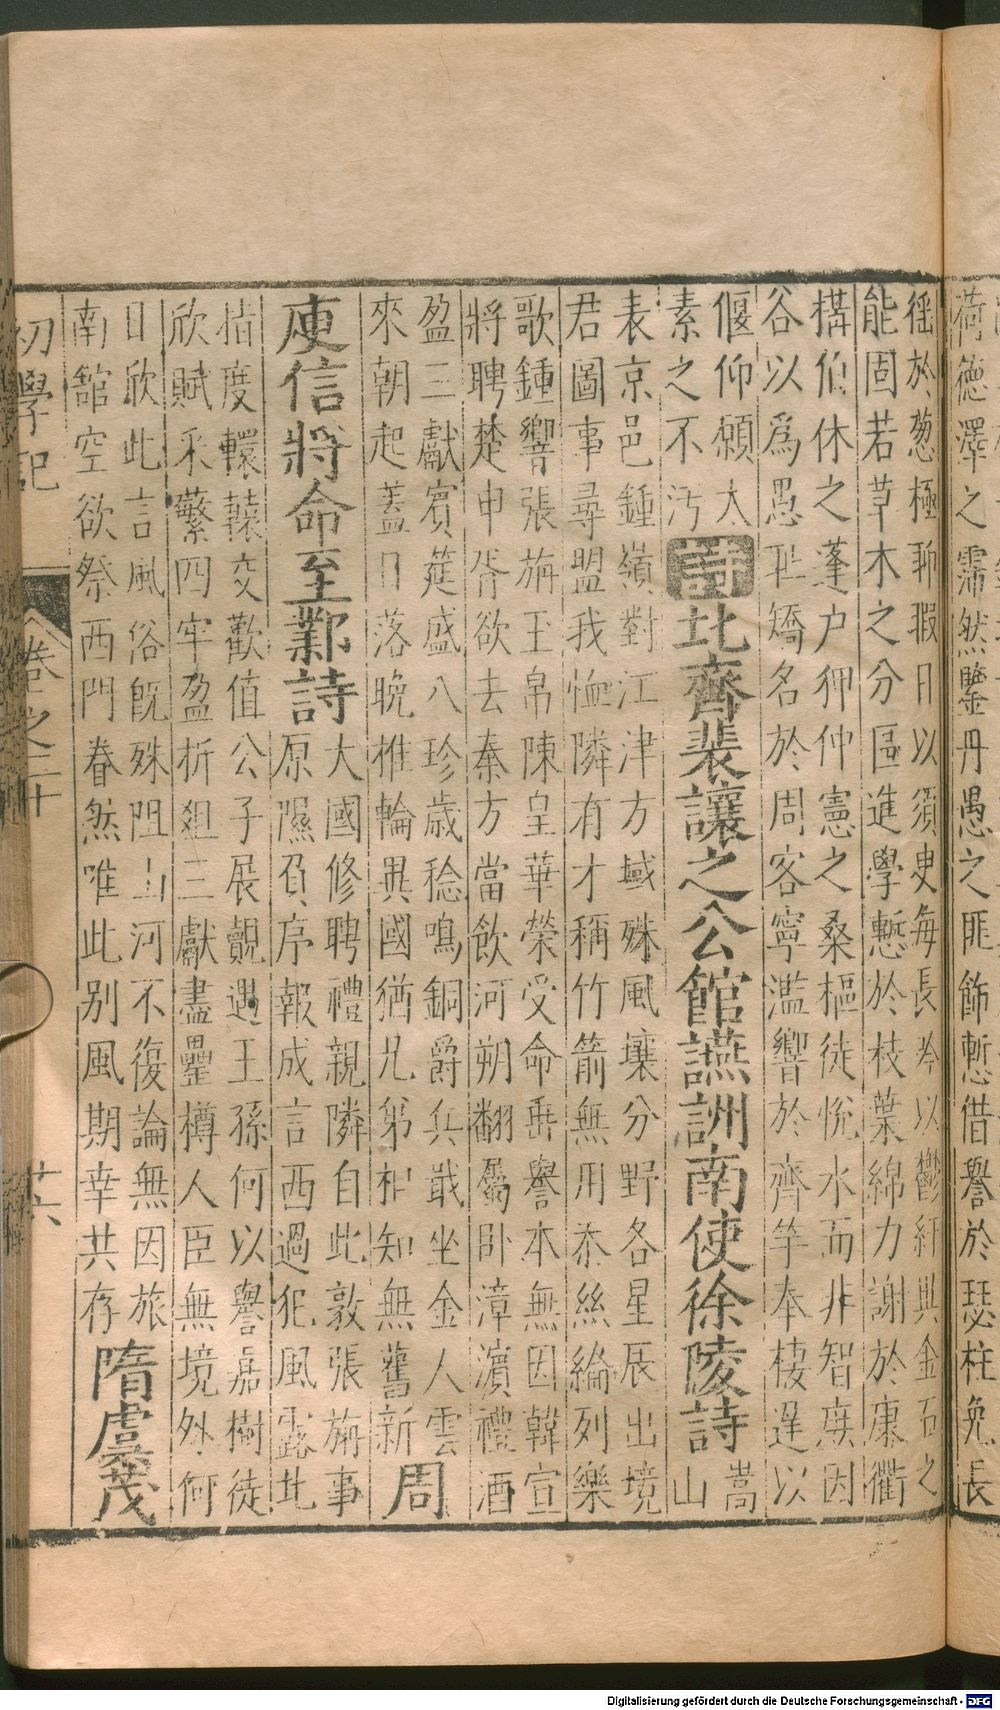 荷德澤之霈然鑒丹愚之匪飾慙借譽於瑟柱免長
徭於葱極聊暇日以須臾每長吟以鬱紆與金石之
能固若草木之分區進學慙於枝葉綿力謝於康衢
構伯休之蓬户狎仲憲之桑樞徒悦水而非智庾因
谷以爲愚恥矯名於周客寧濫響於齊竽奉棲遲以
偃仰願太
素之不汚
詩北齊裴讓之公館讌詶南使徐陵詩
嵩
山
表京邑鍾嶺對江津方域殊風壤分野各星辰出境
君圖事尋盟我恤隣有才稱竹箭無用忝絲綸列樂
歌鍾響張旃玉帛陳皇華榮受命垂譽本無因韓宣
將聘楚申胥欲去秦方當飲河朔翻屬卧漳濱禮酒
盈三獻賓筵盛八珍歲稔鳴銅爵兵戢坐金人雲
來朝起蓋日落晩推輪異國猶兄弟相知無舊新
周
庾信將命至鄴詩
大國修聘禮親隣自此敦張旃事
原隰負序報成言西過犯風露北
指度轘轅交歡值公子展覿遇王孫何以譽嘉樹徒
欣賦采蘩四牢盈折俎三獻盡罍樽人臣無境外何
日欣此言風俗既殊阻山河不復論無因旅
南舘空欲祭西門眷然唯此别風期幸共存
隋虞茂
初學記
卷之二十
廿六
Digitalisierung gefördert durch die Deutsche Forschungsgemeinschaft - DFG